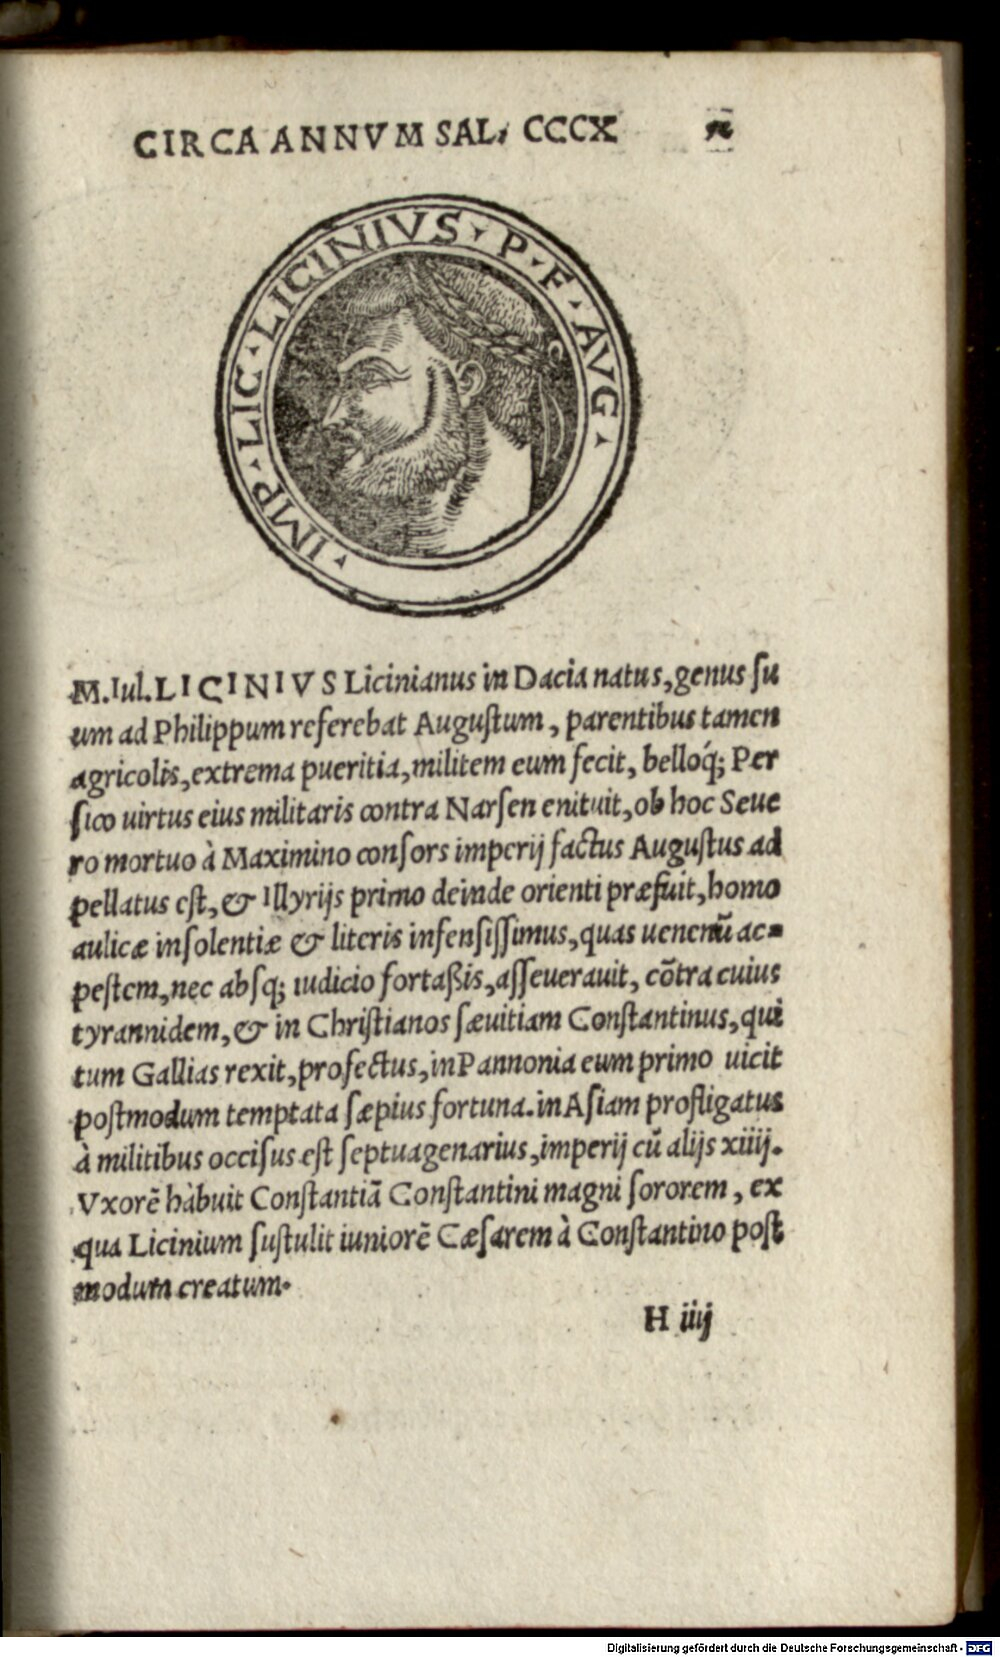 CIRCA ANNVM SAL. CCCX
· IMP · LIC · LICINIVS · P · F · AUG ·
M. Iul. LICINIVS Licinianus in Dacia natus, genus ſu
um ad Philippum referebat Auguſtum, parentibus tamen
agricolis, extrema pueritia, militem eum fecit, belloq́; Per
ſico uirtus eius militaris contra Narſen enituit, ob hoc Seue
ro mortuo à Maximino conſors imperij factus Auguſtus ad
pellatus eſt, & Illyrijs primo deinde orienti præfuit, homo
aulicæ inſolentiæ & literis infenſiſſimus, quas uenenū ac=
peſtem, nec abſq; iudicio fortaßis, aſſeuerauit, cōtra cuius
tyrannidem, & in Chriſtianos ſæuitiam Conſtantinus, qui
tum Gallias rexit, profectus, in Pannonia eum primo uicit
poſtmodum temptata ſæpius fortuna. in Aſiam profligatus
à militibus occiſus eſt ſeptuagenarius, imperij cū alijs xiiij.
Vxorē habuit Conſtantiā Conſtantini magni ſororem, ex
qua Licinium ſuſtulit iuniorē Cæſarem à Conſtantino poſt
modum creatum.
H iiij
Digitalisierung gefördert durch die Deutsche Forschungsgemeinschaft - DFG